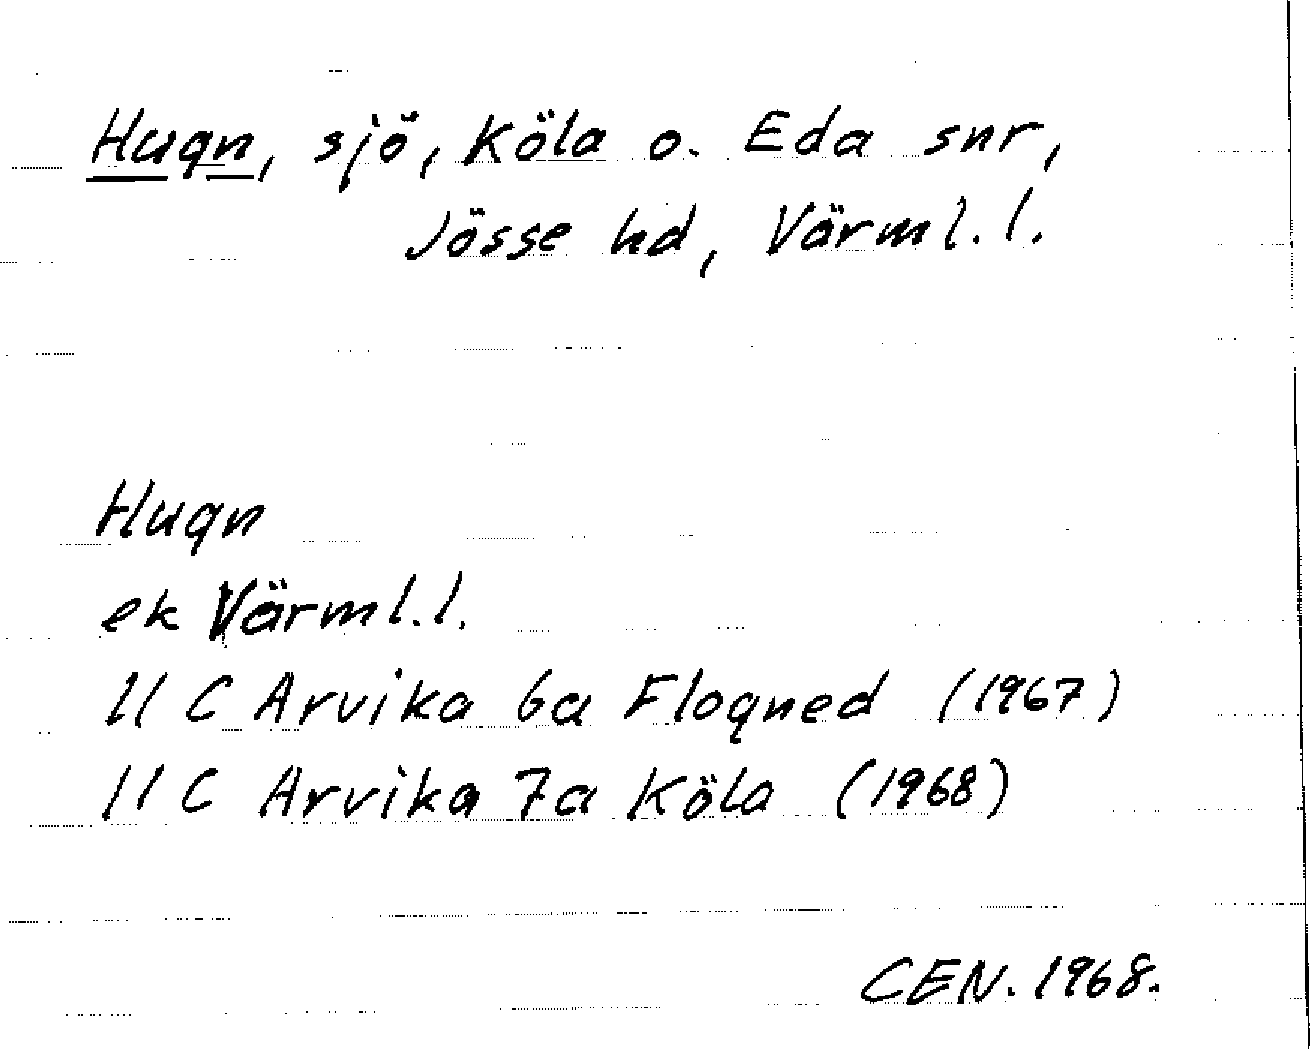 Hugn, sjö, Köla o. Eda snr,
Jösse hd, Värml. l.
Hugn
ek Värml. l.
11 C Arvika 6a Flogned (1967)
11 C Arvika 7a Köla (1968)
CEN. 1968.